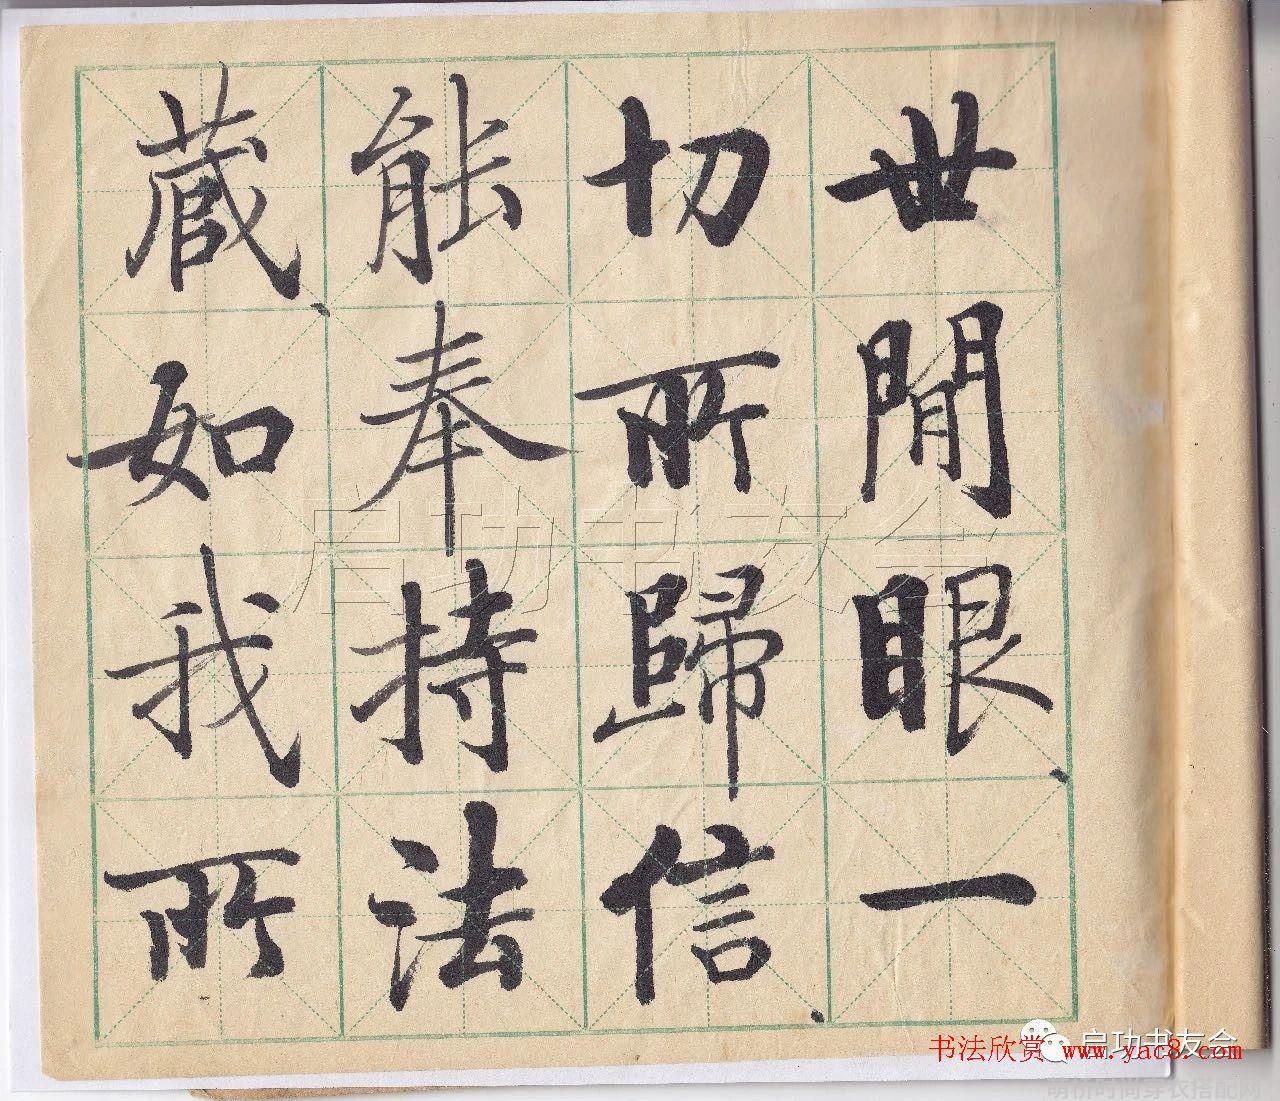 世間眼一
切所歸信
能奉持法
藏如我所
启功书友会
书法欣赏 www.yac8.com
启功书友会
萌桥时尚穿衣搭配网